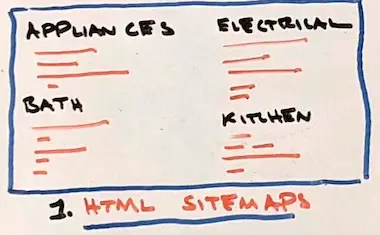 APPLIANCES
ELECTRICAL
BATH
KITCHEN
1. HTML SITEMAPS